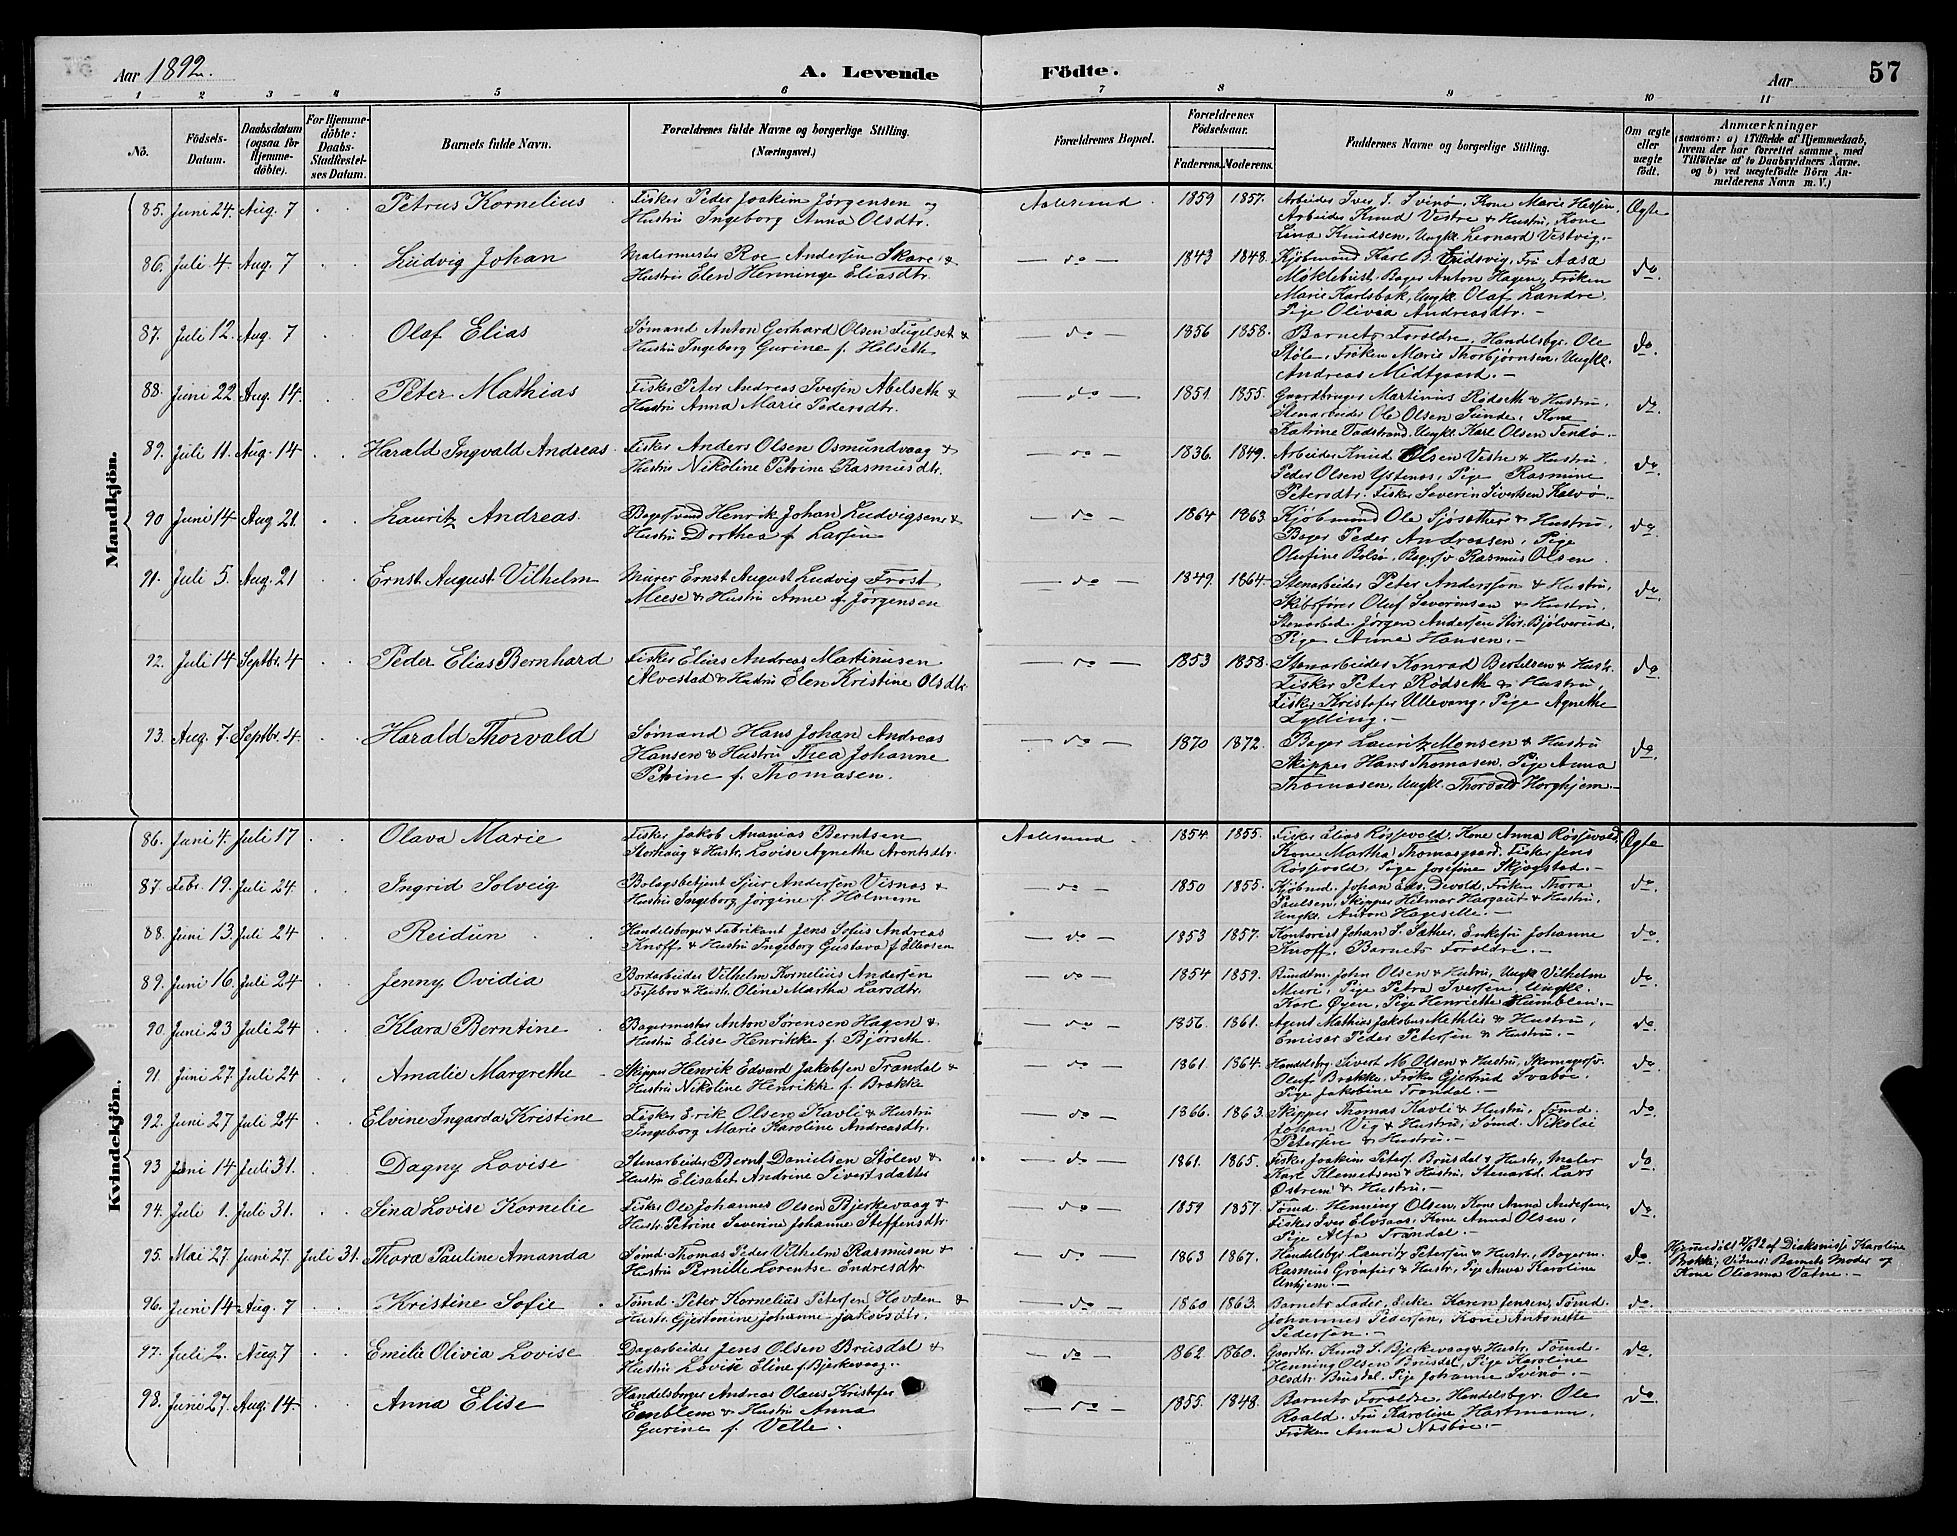 Aar 1892.
A. Levende Födte.
Aar
57
1 2 3 4 5 6 7 8 9 10 11
No.
Födsels-Datum.
Daabsdatum (ogsaa for Hjemmedöbte).
For Hjemmedöbte: Daabs-Stadfæstelses Datum.
Barnets fulde Navn.
Forældrenes fulde Navne og borgerlige Stilling. (Næringsvei.)
Forældrenes Bopæl.
Forældrenes Födselsaar.
Faderens. Moderens.
Faddernes Navne og borgerlige Stilling.
Om ægte eller uægte födt.
Anmærkninger
(saasom: a) i Tilfælde af Hjemmedaab, hvem der har forrettet samme, med Tilföielse af to Daabsvidners Navne. og b) ved uægtefödte Börn Anmelderens Navn m. V.)
Mandkjön.
85. Juni 24. Aug. 7 Petrus Kornelius Fisker Peder Joakim Jørgensen og Aalesund 1859 1857. Arbeider Iver J. Svinø, Kone Marie Hessen, Ægte
Hustru Ingeborg Anna Olsdtr. Arbeider Knud Vestre & Hustru, Kone
Lina Knudsen, Ungkl. Leonard Vestvig.-
86. Juli 4. Aug. 7 Ludvig Johan Malermester Roe Andersen Skare & do 1843 1848. Kjøbmand Karl B. Eidsvig, Fru Aasa do.
Hustru Elen Henninge Eliasdtr. Møklebust, Bager Anton Hagen, Frøken
Marie Karlsbak, Ungkl. Olaf Landre,
Pige Olivia Andreasdtr.-
87. Juli 12. Aug. 7 Olaf Elias Sømand Anton Gerhard Olsen Fugelset & do 1856 1858. Barnets Forældre, Handelsbgr. Ole do.
Hustru Ingeborg Gurine f. Holseth Støle, Frøken Marie Thorbjørnsen, Ungkl.
Andreas Midtgaard.-
88. Juni 22 Aug. 14. Peter Mathias Fisker Peter Andreas Iversen Abelseth & do 1851 1855. Gaardbruger Martinus Rødseth & Hustru, do.
Hustru Anna Marie Pedersdtr. Stenarbeider Ole Olsen Sunde, Kone
Katrine Tadstrand, Ungkl. Karl Olsen Tendø.-
89. Juli 11. Aug. 14 Harald Ingvald Andreas Fisker Anders Olsen Osmundvaag & do 1836 1849. Arbeider Knud Olsen Vestre & Hustru, do.
Hustru Nikoline Petrine Rasmusdtr. Peder Olsen Ystenes, Pige Rasmine
Petersdtr. Fisker Severin Sivertsen Kalvø.-
90 Juni 14 Aug 21. Lauritz Andreas. Bagersvend Henrik Johan Ludvigsen & do 1864 1863. Kjøbmand Ole Sjøsether & Hustru, do.
Hustru Dorthea f. Larsen Bager Peder Andreasen, Pige
Olufine Bolsø, Bagersv Rasmus Olsen
91. Juli 5. Aug. 21 Ernst August Vilhelm Murer Ernst August Ludvig Frost do 1849. 1864. Stenarbeider Peter Anderssen & Hustru, do.
Meese & Hustru Anne f. Jørgensen Skibsfører Oluf Severinsen & Hustru,
Stenarbed. Jørgen Andersen Bjølverud,
Pige Anne Hansen.-
92. Juli 14 Septbr. 4 Peder Elias Bernhard Fisker Elias Andreas Martinusen do 1853 1858. Stenarbeider Konrad Bertelsen & Hustr. do.
Alvestad & Hustru Elen Kristine Olsdtr. Fisker Peter Rødseth & Hustru,
Fisker Kristofer Ullevang, Pige Agnethe
Lylling.-
93. Aug. 7. Septbr. 4. Harald Thorvald Sømand Hans Johan Andreas do 1870 1872. Bager Lauritz Monsen & Hustru do.
Hansen & Hustru Thea Johanne Skipper Hans Thomasen, Pige Anna
Petrine f. Thomasen. Thomasen, Ungkl. Thorvald Horghjem.-
Kvindekjön.
86. Juni 4. Juli 17 Olava Marie Fisker Jakob Ananias Berntsen Aalesund 1854 1855. Fisker Elias Røssevold, Kone Anna Røssevold, Ægte
Storhaug & Hustr. Lovise Agnethe Arentsdtr. Kone Martha Thomasgaard, Fisker Jens
Røssevold, Pige Josefine Skjogstad.-
87 Febr. 19. Juli 24. Ingrid Solveig Bolagsbetjent Sjur Andersen Visnes & do 1850 1855. Kjøbmd. Johan Ens. Devold, Frøken Thora do.
Hustru Ingeborg Jørgine f. Holmem Paulsen, Skipper Hilmar Hargaut & Hustru,
Ungkl. Anton Hageselle.-
88. Juni 13. Juli 24 Reidun Handelsborger & Fabrikant Jens Sofus Andreas do 1853 1857. Kontorist Johan S. Sæther, Enkefru Johanne do.
Knoff & Hustru Ingeborg Gustava f. Ellersen Knoff, Barnets Forældre.-
89. Juni 16. Juli 24 Jenny Ovidia Bordarbeider Vilhelm Kornelius Andersen do 1854 1859. Bundtm. John Olsen & Hustru, Ungkl Vilhelm do.
Tossebro & Hustr. Oline Martha Larsdtr. Muri, Pige Petra Iversen, Ungkl.
Karl Øyen, Pige Henriette Humblen.-
90. Juni 23 Juli 24 Klara Berntine Bagermester Anton Sørensen Hagen & do 1856. 1861. Agent Mathias Jakobus Methlie & Hustru, do.
Hustru Elise Henrikke f. Bjørseth. Emisær Peder Petersen & Hustru.-
91 Juni 27 Juli 24 Amalie Margrethe Skipper Henrik Edvard Jakobsen Trandal & do 1861. 1864. Handelsbg. Sivert M. Olsen & Hustru, Skomagersv. do.
Hustru Nikoline Henrikke f. Brakke Oluf Brakke, Frøken Gjertrud Svabøe,
Pige Jakobine Trandal.-
92. Juni 27 Juli 24 Elvine Ingarda Kristine Fisker Erik Olsen Havli & Hustru do 1866. 1863. Skipper Thomas Havli & Hustru, Tømd. do.
Ingeborg Marie Karoline Andreasdtr. Johan Vig & Hustru, Sømd. Nikolai
Petersen & Hustru.-
93 Juni 14 Juli 31. Dagny Lovise Stenarbeider Bernt Danielsen Stølen & do 1861. 1865. Fisker Joakim Peters. Brusdal & Hustr, Maler do
Hustru Elisabet Andrine Sivertsdatter Karl Klemetsen & Hustru, Stenarbd. Lars
Østrem & Hustru.-
94. Juli 1. Juli 31. Sina Lovise Kornelie Fisker Ole Johannes Olsen Bjerkevaag & do 1859 1857. Tømd. Henning Olsen, Kone Anna Andersen, do.
Hustr. Petrine Severine Johanne Steffensdtr. Fisker Iver Elvsaas, Kone Anna Olsen,
Pige Alfa Trandal.-
95. Mai 27. Juni 27. Juli 31. Thora Pauline Amanda Sømd. Thomas Peder Vilhelm Rasmusen & do 1863 1867. Handelsbgr. Lauritz Petersen & Hustr., Bagerm. do. Hjemmedøbt af Diakonisse Karoline
Hustru Pernille Lorentse Endresdtr. Rasmus & Hustr., Pige Anna Karoline Brakke; Vidner: Barnets Moder og
Kone Olianna Vatne.-
96. Juni 14 Aug. 7 Kristine Sofie Tømd. Peter Kornelius Petersen Hovden & do 1860 1863. Barnets Fader, Enke Karen Jensen, Tømd. do.
Hustr. Gjertmine Johanne Jakobsdtr. Johannes Pedersen, Kone Antonette
Pedersen.-
97. Juli 2. Aug. 7 Emilie Olivia Lovise Dagarbeider Jens Olsen Brusdal & do 1862 1860. Gaardbr. Knud S. Bjerkevaag & Hustr. Tømd. do.
Hustru Lovise Eline f. Bjerkevaag. Henning Olsen Brusdal, Pige Karoline
Olsdtr. Brusdal, Pige Johanne Svinø.-
98. Juni 27. Aug. 14. Anna Elise Handelsborger Andreas Olaus Kristofer do 1855. 1848. Barnets Forældre, Handelsbgr. Ole do.
Emblem & Hustru Anna Roald, Fru Karoline Hartmann,
Gurine f. Velle. Frøken Anna Næsbøe.-